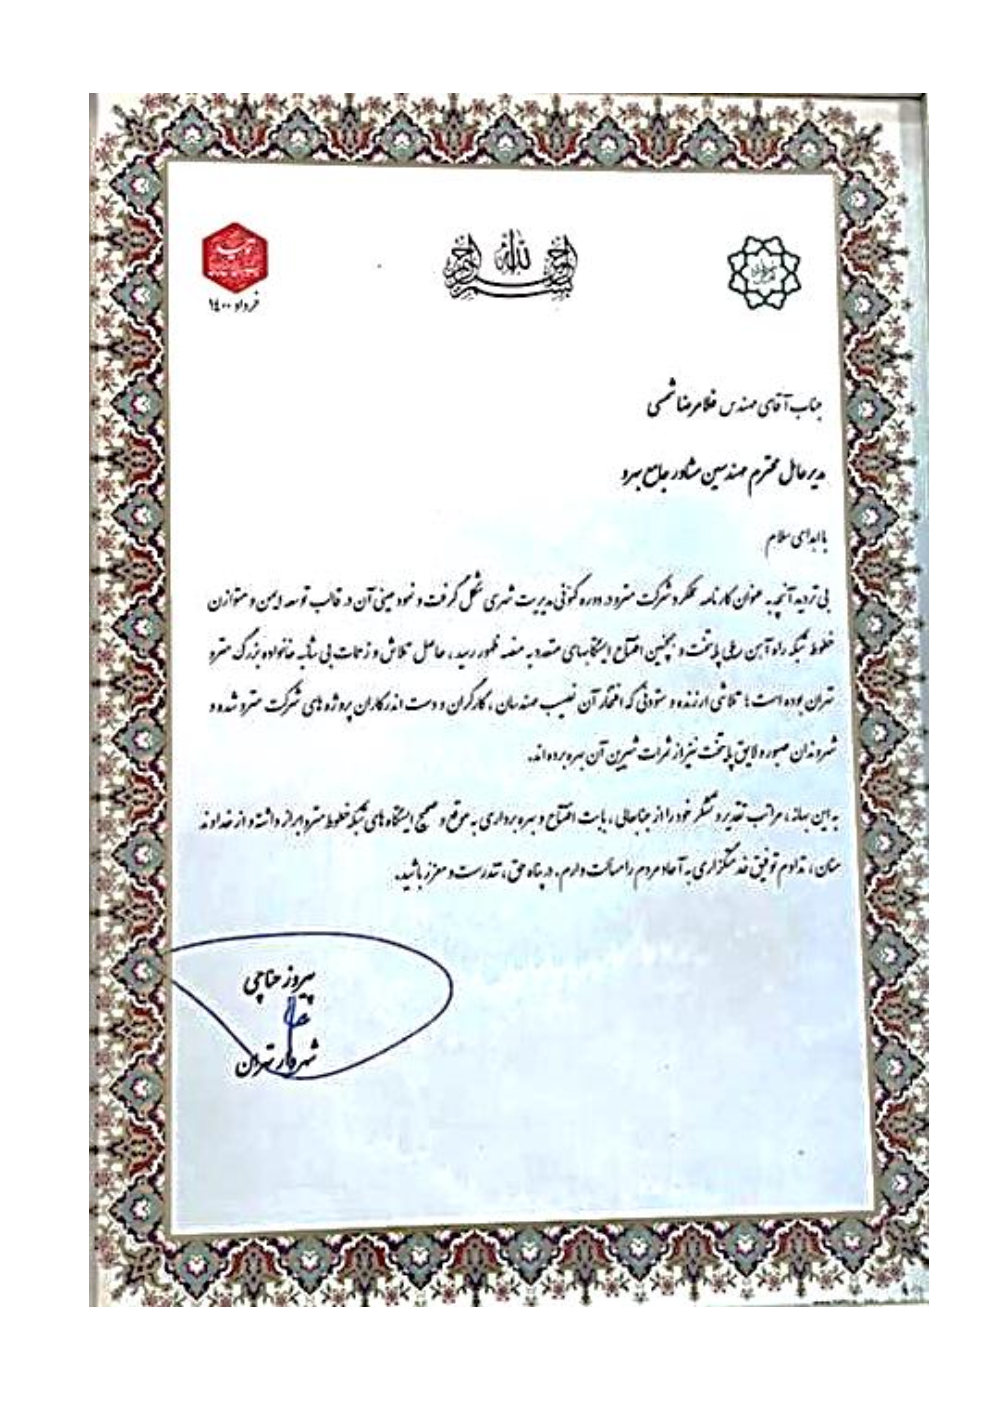 بسم الله الرحمن الرحیم
خرداد ۱۴۰۰
جناب آقای مهندس غلامرضا شمسی
مدیرعامل محترم مهندسین مشاور جامع بهرو
با اهدای سلام
بی تردید آنچه به عنوان کارنامه عملکرد شرکت مترو در دوره کنونی مدیریت شهری شکل گرفت و نمود عینی آن در قالب توسعه ایمن و متوازن
خطوط شبکه راه آهن ریلی پایتخت و همچنین افتتاح ایستگاههای متعدد به منصه ظهور رسید، حاصل تلاش و زحمات بی شائبه خانواده بزرگ مترو
تهران بوده است؛ تلاشی ارزنده و ستودنی که افتخار آن نصیب مهندسان، کارگران و دست اندرکاران پروژه های شرکت مترو شده و
شهروندان صبور و لایق پایتخت نیز از ثمرات شیرین آن بهره برده اند.
به این بهانه، مراتب تقدیر و تشکر خود را از جنابعالی، بابت افتتاح و بهره برداری به موقع و صحیح ایستگاه های شبکه خطوط مترو ابراز داشته و از خداوند
منان، تداوم توفیق خدمتگزاری به آحاد مردم را مسألت دارم. در پناه حق، تندرست و معزز باشید.
پیروز حناچی
شهردار تهران